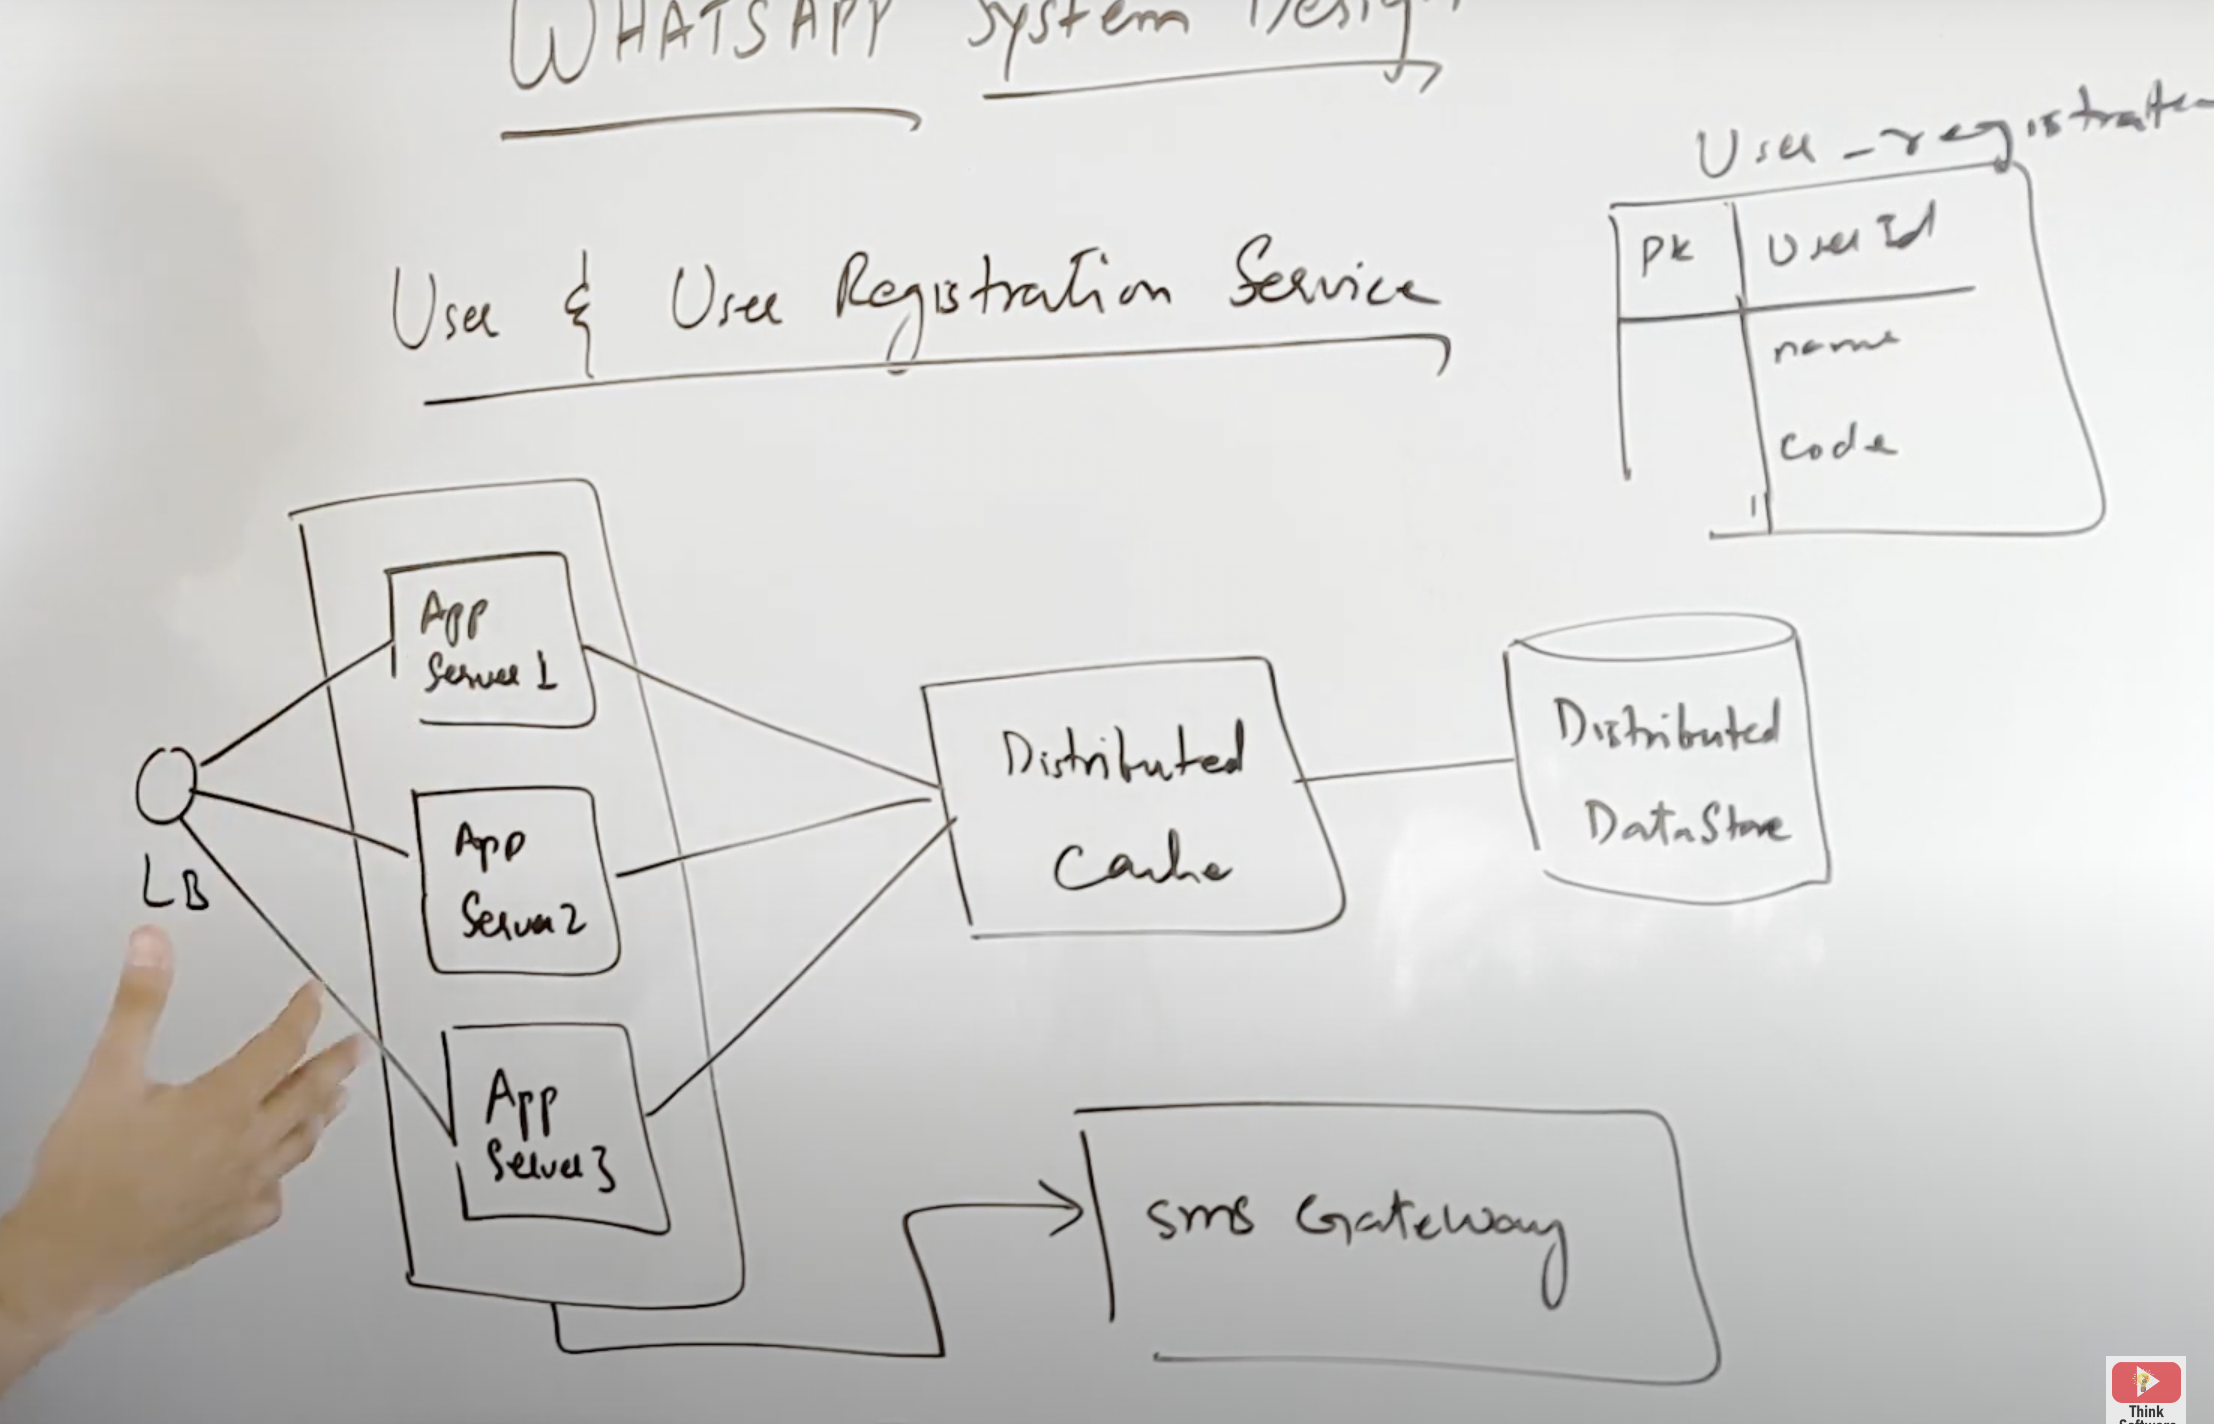 WHATSAPP System Design
User & User Registration Service
User_registration
PK UserId
name
code
App
Server 1
App
Server 2
App
Server 3
LB
Distributed
Cache
Distributed
DataStore
SMS Gateway
Think
Software